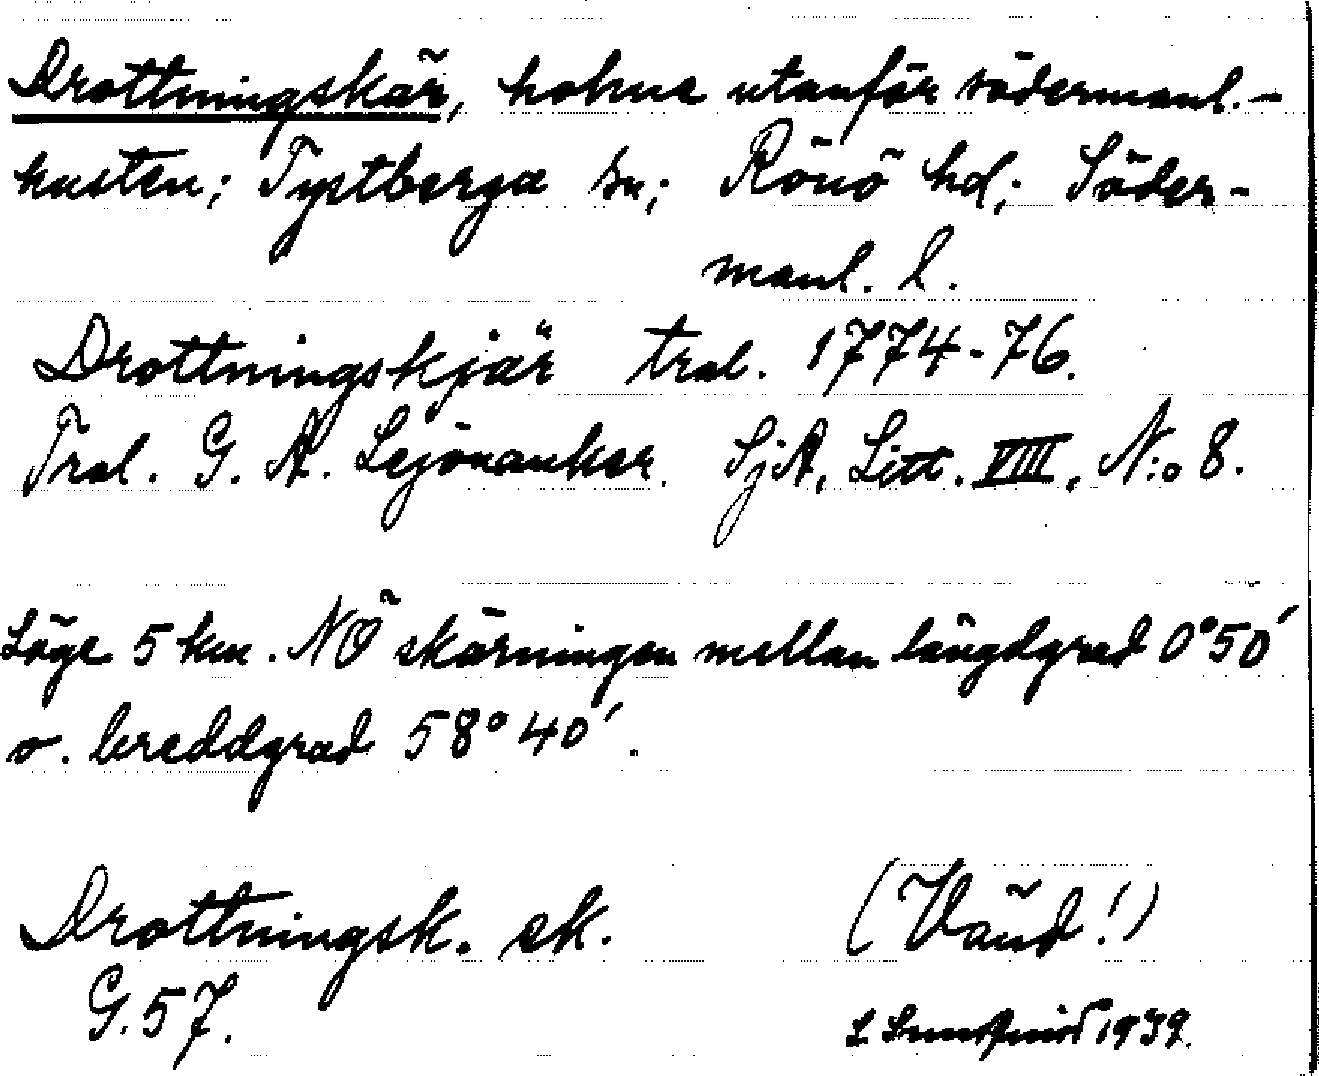 Drottningskär, holme utanför södermanl.-
kusten; Tystberga sn; Rönö hd; Söder-
manl. l.
Drottningskjär tral. 1774-76.
Tral. G. A. Lejonanker. SjA, Litt. VIII, N:o 8.
Läge 5 km. NÖ skärningen mellan längdgrad 0°50′
o. breddgrad 58°40′.
Drottningsk. ek. (Vänd!)
G.57.
1939.